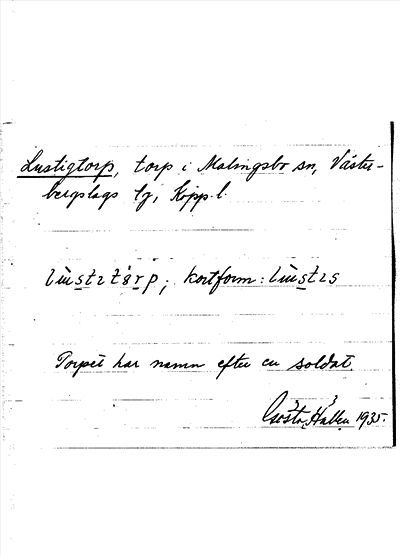 Lustigtorp, torp i Malingsbo sn, Väster-
bergslags tg, Kopp. l.
kortform:
Torpet har namn efter en soldat.
Gösta Hallen 1935.